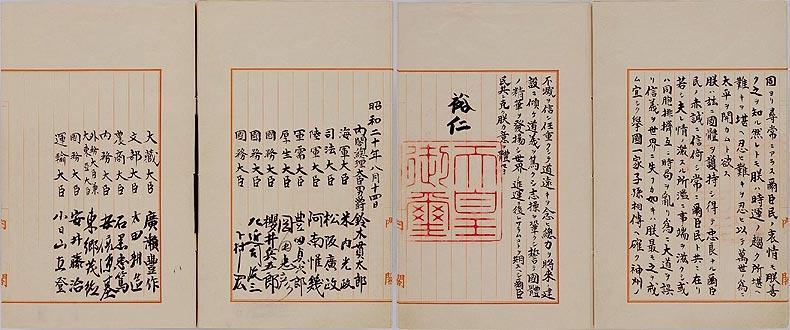 固ヨリ尋常ニアラス爾臣民ノ衷情モ朕善
ク之ヲ知ル然レトモ朕ハ時運ノ趨ク所堪ヘ
難キヲ堪ヘ忍ヒ難キヲ忍ヒ以テ萬世ノ爲ニ
太平ヲ開カムト欲ス
朕ハ茲ニ國體ヲ護持シ得テ忠良ナル爾臣
民ノ赤誠ニ信倚シ常ニ爾臣民ト共ニ在リ
若シ夫レ情ノ激スル所濫ニ事端ヲ滋クシ或
ハ同胞排擠互ニ時局ヲ亂リ爲ニ大道ヲ誤
リ信義ヲ世界ニ失フカ如キハ朕最モ之ヲ戒
ム宜シク擧國一家子孫相傳ヘ確ク神州ノ
不滅ヲ信シ任重クシテ道遠キヲ念ヒ總力ヲ將來ノ建
設ニ傾ケ道義ヲ篤クシ志操ヲ鞏クシ誓テ國體
ノ精華ヲ發揚シ世界ノ進運ニ後レサラムコトヲ期スヘシ爾臣
民其レ克ク朕カ意ヲ體セヨ
裕仁
天皇
御璽
昭和二十年八月十四日
内閣總理大臣男爵 鈴木貫太郎
海軍大臣 米内光政
司法大臣 松阪廣政
陸軍大臣 阿南惟幾
軍需大臣 豊田貞次郎
厚生大臣 岡田忠彦
國務大臣 櫻井兵五郎
國務大臣 左近司政三
國務大臣 下村宏
大藏大臣 廣瀬豊作
文部大臣 太田耕造
農商大臣 石黒忠篤
内務大臣 安倍源基
外務大臣兼
大東亞大臣 東郷茂徳
國務大臣 安井藤治
運輸大臣 小日山直登